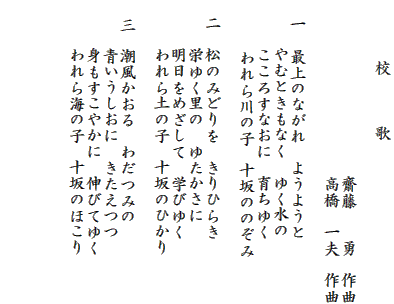 校 歌
齋藤 勇 作曲
高橋 一夫 作曲
一
最上のながれ ようようと
やむときもなく ゆく水の
こころすなおに 育ちゆく
われら川の子 十坂ののぞみ
二
松のみどりを きりひらき
栄ゆく里の ゆたかさに
明日をめざして 学びゆく
われら土の子 十坂のひかり
三
潮風かおる わだつみの
青いうしおに きたえつつ
身もすこやかに 伸びてゆく
われら海の子 十坂のほこり